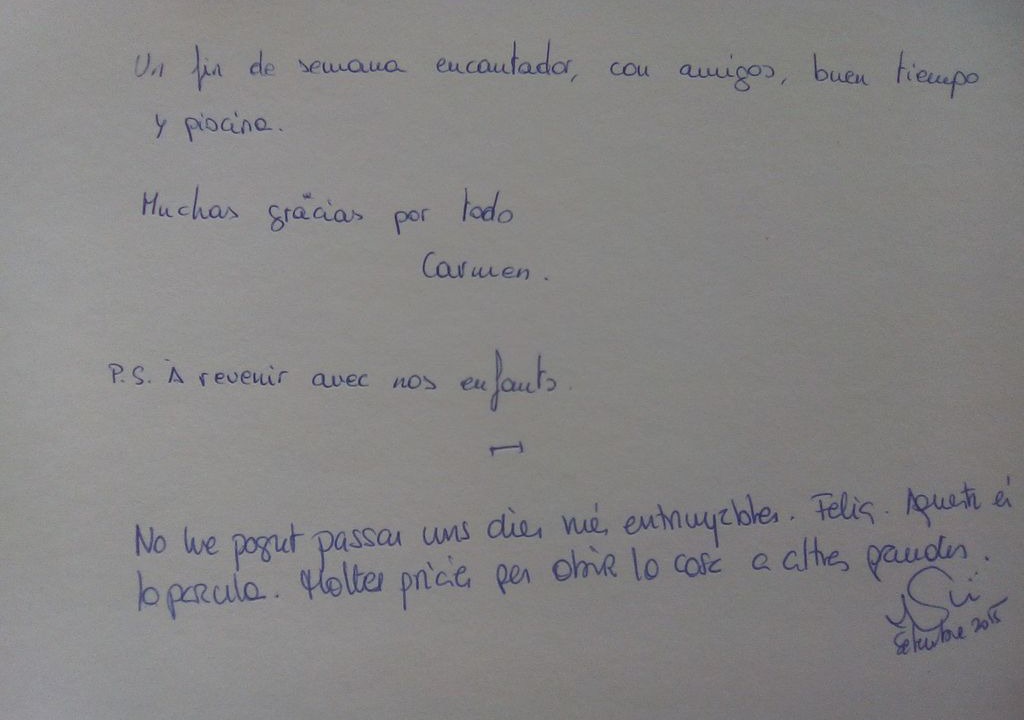 Un fin de semana encantador, con amigos, buen tiempo
y piscina.
Muchas gràcias por todo
Carmen.
P.S. À revenir avec nos enfants.
No he pogut passar uns dies més entranyables. Feliç. Aquesta és
la paraula. Moltes gràcies per obrir la casa a altres
Setembre 2015